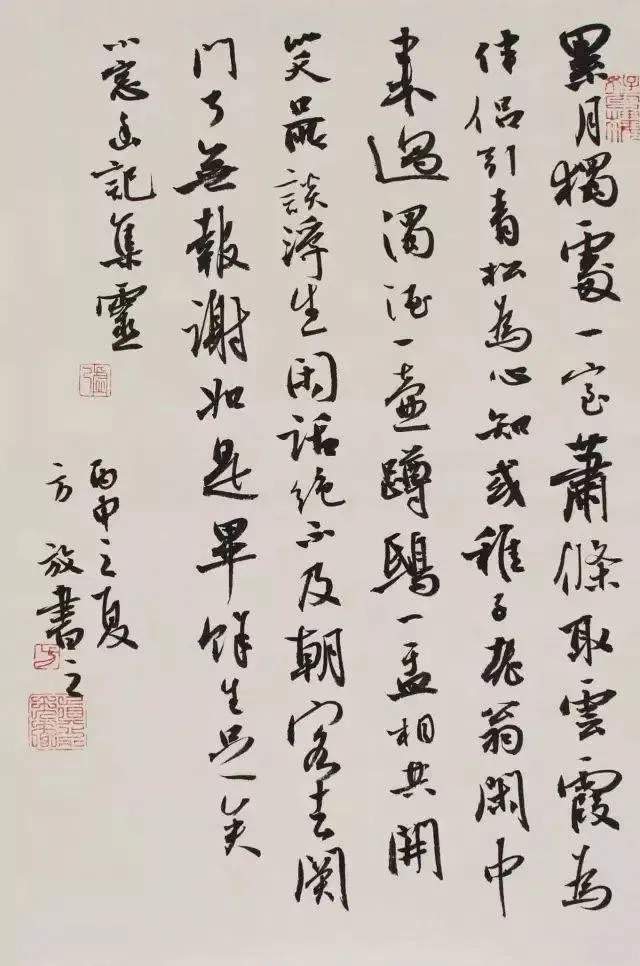 累月獨處一室蕭條取雲霞為
伴侶引青松為心知或稚子老翁閑中
來過濁酒一壺蹲鴟一盂相共開
笑品談浮生閑話絕不及朝客去關
門了無報謝如是畢餘生足矣
小窗幽記集靈
丙申之夏
方放書之